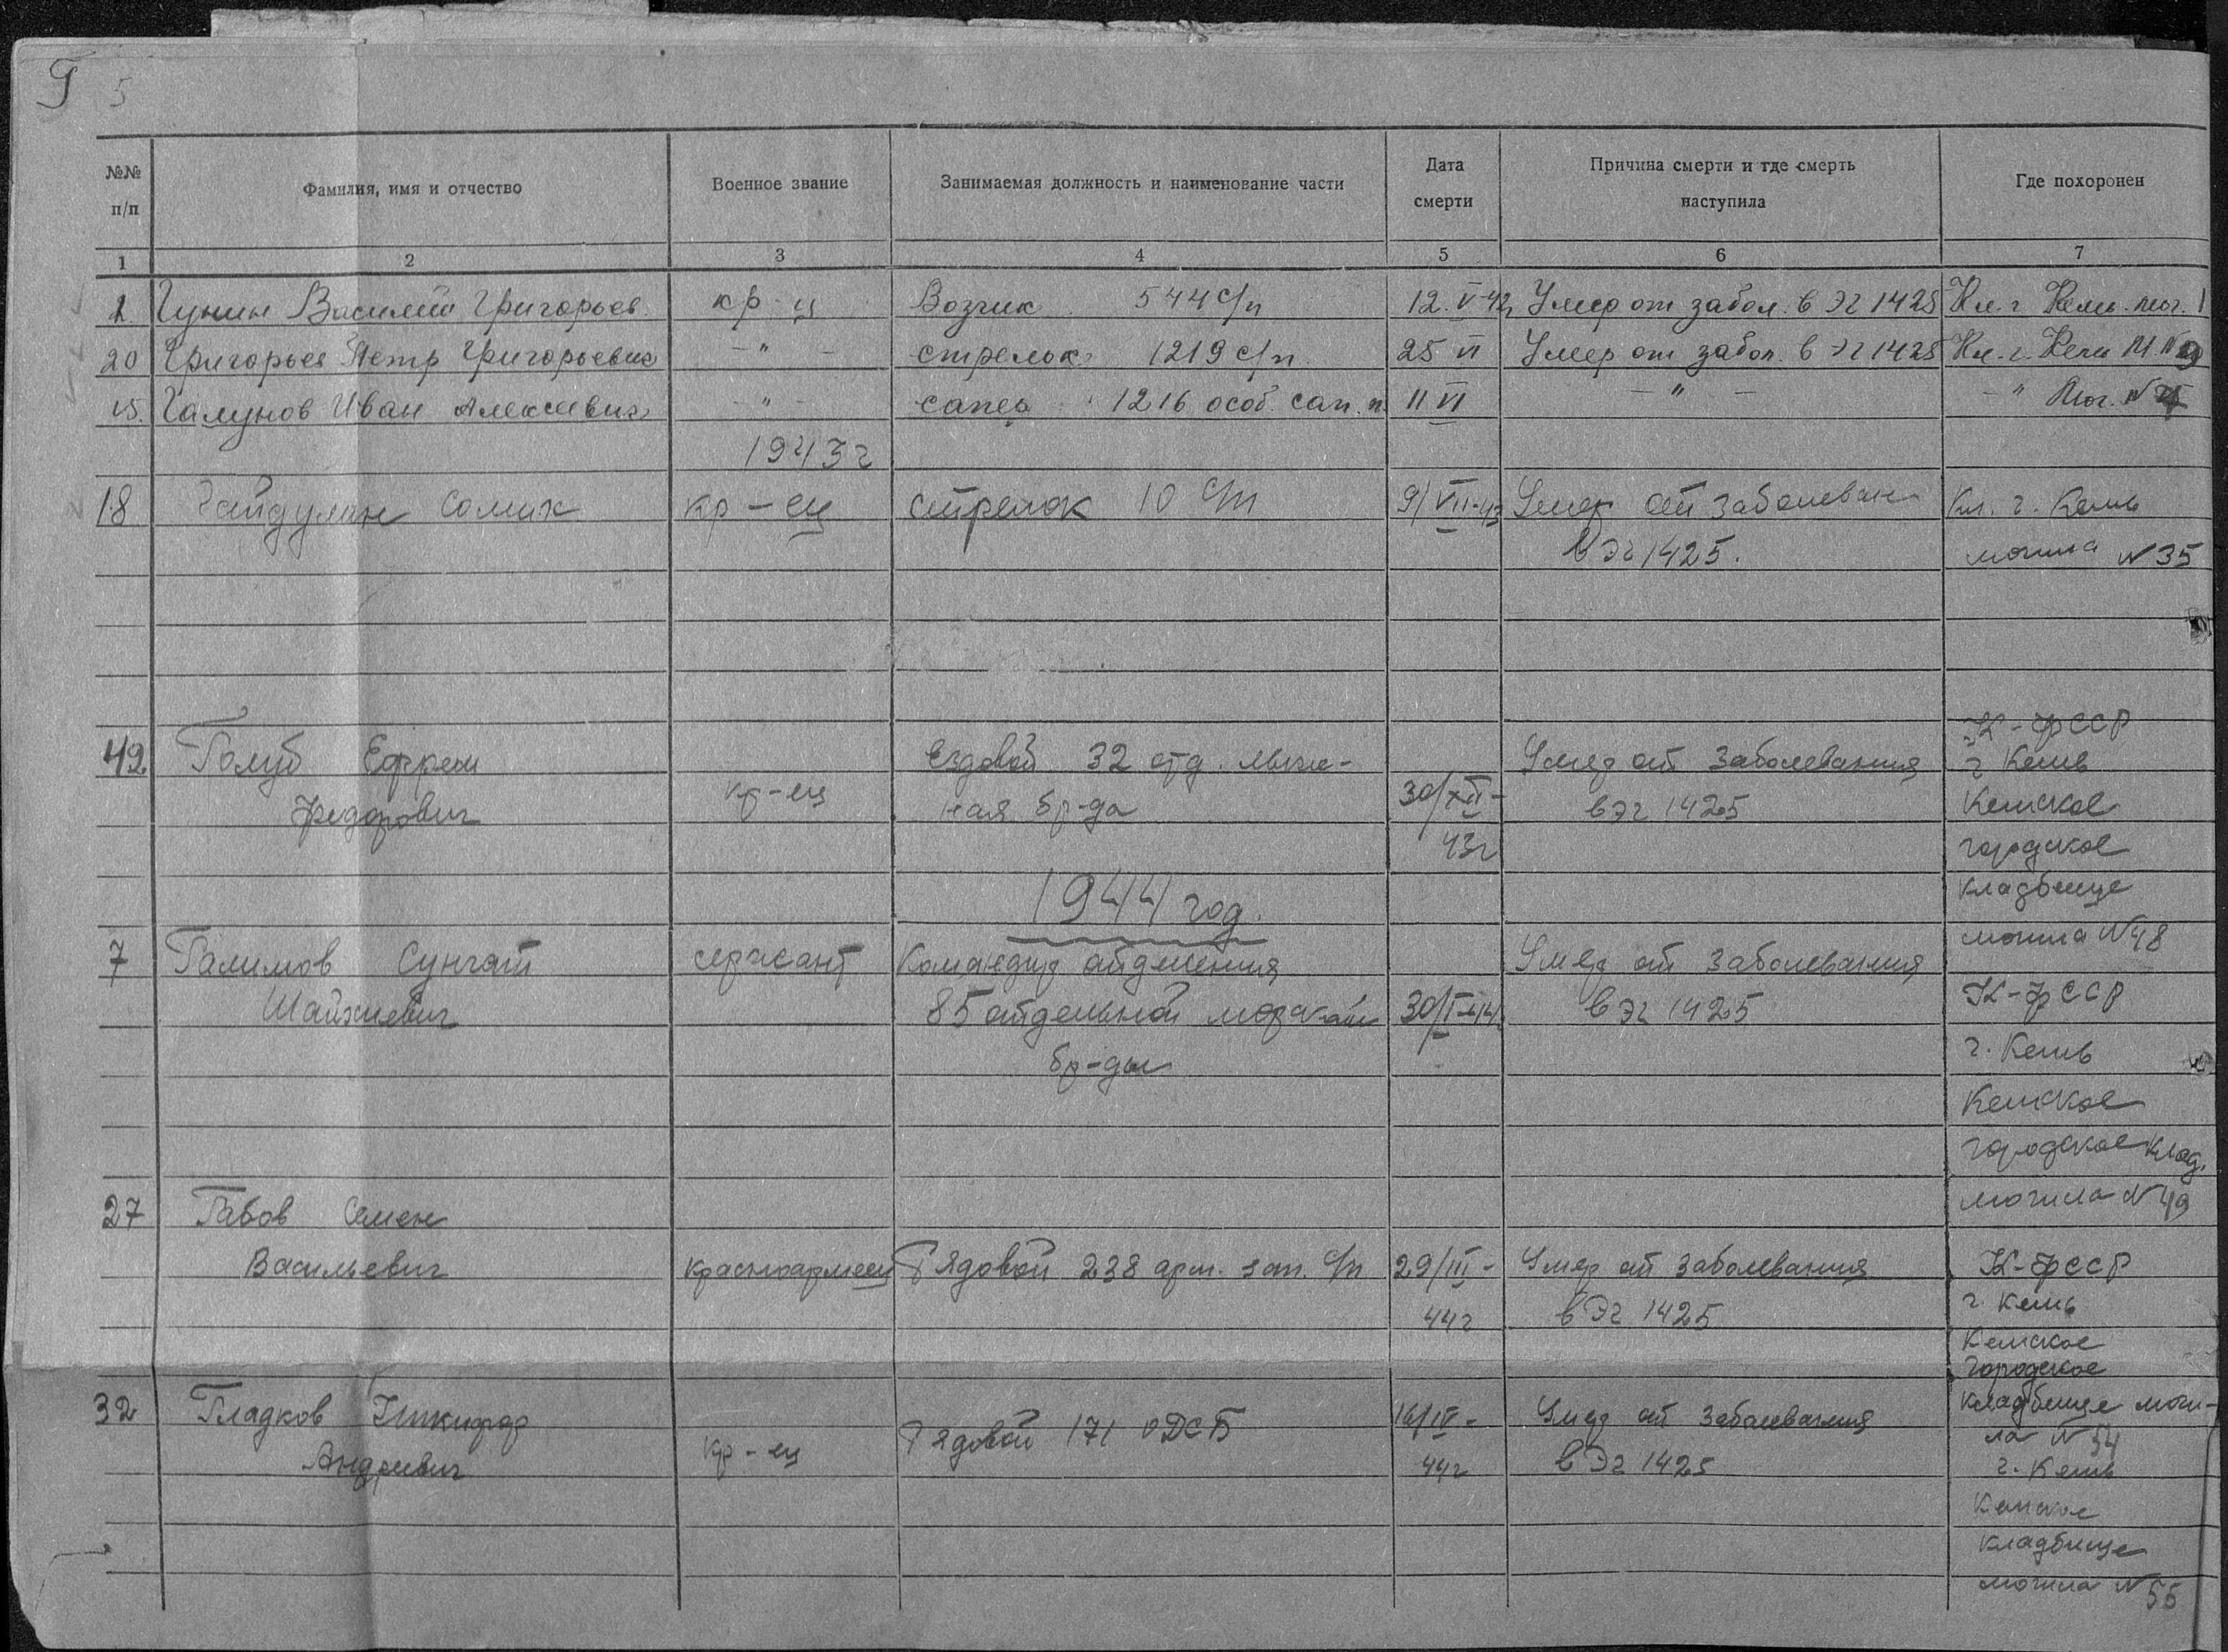 Г 5
№№ п/п Фамилия, имя и отчество Военное звание Занимаемая должность и наименование части Дата смерти Причина смерти и где смерть наступила Где похоронен
1 2 3 4 5 6 7
1 Гунин Василий Григорьев. кр-ц Возчик 544 с/п 12.V-42 Умер от забол. в Эг 1425 Кл. г. Кемь. мог. 1
20 Григорьев Петр Григорьевич -"- стрелок 1219 с/п. 25 VI Умер от забол. в Эг 1425 Кл. г. Кемь М. №9
15. Галунов Иван Алексеевич -"- сапер 1216 особ. сап. п. 11 VI -"- -" Мог. №
1943г
18 Гайдулин Солих кр-ец стрелок 10 с/п 9/VII-43 Умер от заболеван Кл. г. Кемь
в Эг 1425. могила №35
К-фССР
42 Голуб Ефрем Ездовой 32 отд. лыж- Умер от заболевания г Кемь
Федорович кр-ец ная бр-да 30/XII- в Эг 1425 Кемское
43г городское
1944 год. кладбище
могила №48
7 Галимов Сунгат сержант Командир отделения Умер от заболевания
Шайхиевич 85 отдельной морской 30/I-44 в Эг 1425 К-фССР
бр-ды г. Кемь
Кемское
городское клад.
27 Габов Семен могила №49
Васильевич красноармеец Рядовой 238 арм. зап. с/п 29/III- Умер от заболевания К-фССР
44г в Эг 1425 г. Кемь
Кемское
городское
32 Гладков Никифор 16/IV- Умер от заболевания кладбище моги-
кр-ец Рядовой 171 ОДСБ ла №54
Андреевич 44г в Эг 1425 г. Кемь
Кемское
кладбище
могила №55